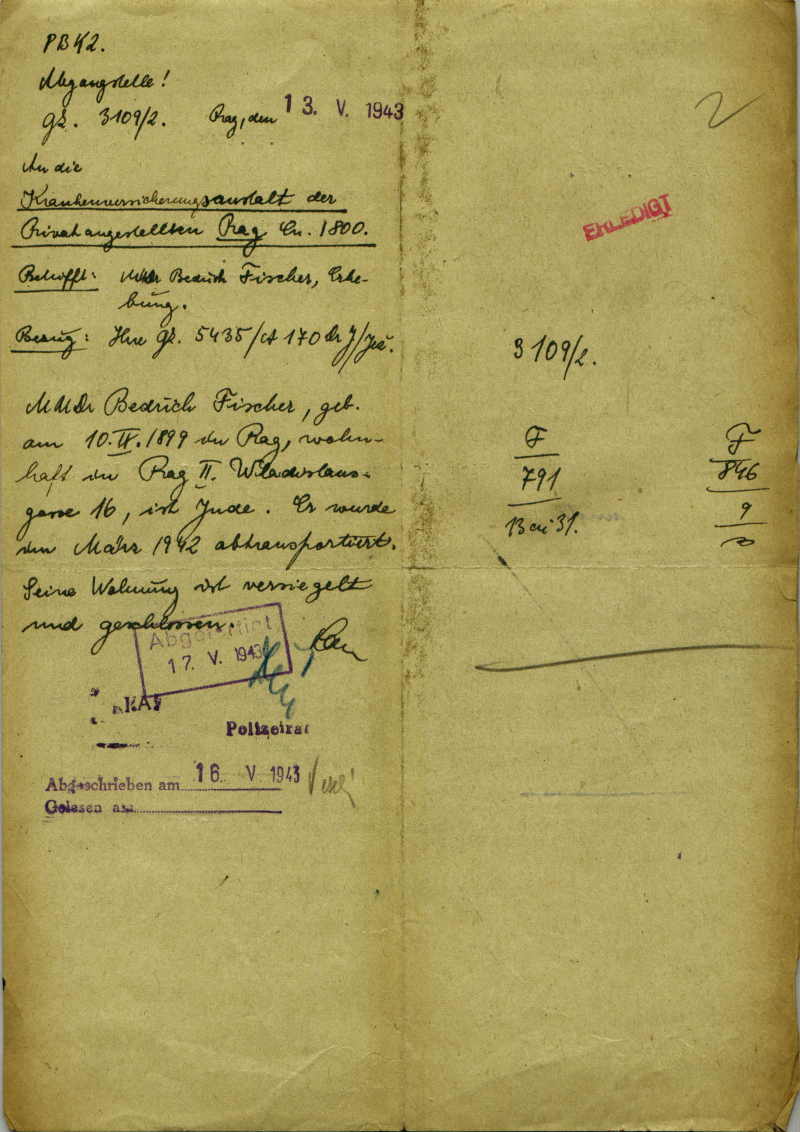 PBK2.
Abgangstelle!
gZ. 3109/2. Prag, den 13. V. 1943
An die
Krankenversicherungsanstalt der
Privatangestellten Prag Cn. 1800.
Betrifft: MUDr Bedrich Fischer, Erhe-
bung.
Bezug: Ihre gZ. 5435/ct 170 Dr J/
MUDr Bedrich Fischer, geb.
am 10.IV.1899 in Prag, wohn-
haft in Prag II. Wladislaus-
gasse 16, ist Jude. Er wurde
im März 1942 abtransportiert.
Seine Wohnung ist versiegelt
und geschlossen.
Abgefertigt
17. V. 1943
Polizeirat
Abgeschrieben am 16. V 1943
Gelesen am
2
ERLEDIGT
3109/2.
F
791
F
846
9